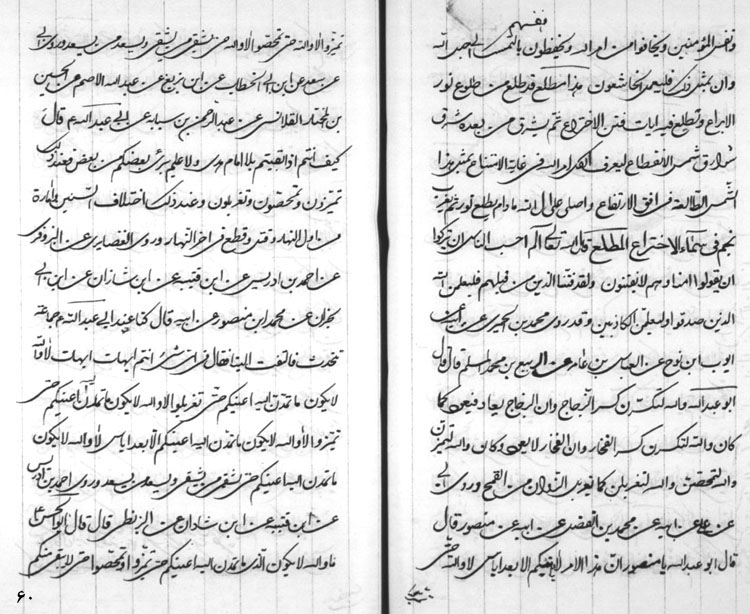 ونفس المؤمنين ويخافوا من امر الله ويحفظون بالتمسك الى حبل الله
وان يمثل ذلك فليعمد الخاشعون هذا مطلع قد طلع من طلوع نور
الابداع وتطلع فيه ايات فتن الاختراع ثم يشرق من بعده شرق
شوارق شمس الانقطاع ليعرف الكل امر الله في غاية الامتناع بمثل هذا
الشمس الطالعة في افق الارتفاع واصلي على الله ما دام يطلع نور ثم يغرب
نجم في سماء الاختراع المطلع قال الله تعالى الم احسب الناس ان يتركوا
ان يقولوا امنا وهم لا يفتنون ولقد فتنا الذين من قبلهم فليعلمن الله
الذين صدقوا وليعلمن الكاذبين وقد روى محمد بن الحميري عن
ايوب ابن نوح عن العباس بن عامر عن الربيع بن محمد المسلي قال قال
ابو عبد الله والله لتكسرن كسر الزجاج وان الزجاج يعاد فيعود كما
كان والله لتكسرن كسر الفخار وان الفخار لا يعود كما كان والله لتميزن
والله لتمحصن والله لتغربلن كما يغربل الزوان من القمح وروى ابي
عن علي عن ابيه عن محمد بن الفضيل عن ابيه عن منصور قال
قال ابو عبد الله يا منصور ان هذا الامر لا ياتيكم الا بعد اياس لا والله حتى
تميزوا لا والله حتى تمحصوا لا والله حتى يشقى من يشقى ويسعد من يسعد وروى ابي
عن سعد عن ابن ابي الخطاب عن ابن بزيع عن عبد الله الاصم عن الحسين
بن المختار القلانسي عن عبد الرحمن بن سيابه عن ابي عبد الله ع قال
كيف انتم اذا بقيتم بلا امام هدى ولا علم يبرئ بعضكم من بعض فعند ذلك
تميزون وتمحصون وتغربلون وعند ذلك اختلاف السنين وامارة
من اول النهار وقتل وقطع في اخر النهار وروى الغضايري عن البزوفري
عن احمد بن ادريس عن ابن قتيبه عن ابن شاذان عن ابن ابي
نجران عن محمد ابن منصور عن ابيه قال كنا عند ابي عبد الله ع جماعة
نتحدث فالتفت الينا فقال في اي شئ انتم ايهات ايهات لا والله
لا يكون ما تمدون اليه اعينكم حتى تغربلوا لا والله لا يكون ما تمدون اليه اعينكم حتى
تميزوا لا والله لا يكون ما تمدون اليه اعينكم الا بعد اياس لا والله لا يكون
ما تمدن اليه اعينكم حتى يشقى من يشقى ويسعد من يسعد وروى احمد بن ادريس
عن ابن قتيبه عن ابن شاذان عن البزنطي قال قال ابو الحسن ع
اما والله لا يكون الذي تمدون اليه اعينكم حتى تميزوا وتمحصوا حتى لا يبقى منكم
٦٠